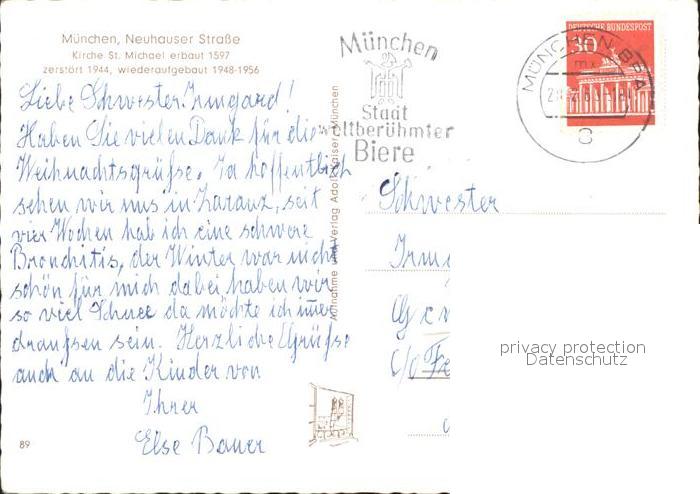 München, Neuhauser Straße
Kirche St. Michael erbaut 1597
zerstört 1944, wiederaufgebaut 1948-1956
Liebe Schwester Irmgard!
Haben Sie vielen Dank für die
Weihnachtsgrüße. Ja hoffentlich
sehen wir uns in Zarauz, seit
vier Wochen hab ich eine schwere
Bronchitis, der Winter war nicht
schön für mich dabei haben wir
so viel Schnee da möchte ich immer
draußen sein. Herzliche Grüße
auch an die Kinder von
Ihrer
Else Bauer
89
Aufnahme und Verlag Adolf Kaiser, München
München
Stadt
weltberühmter
Biere
DEUTSCHE BUNDESPOST
30
MÜNCHEN
8
Schwester
Irm
c/o Fe
privacy protection
Datenschutz